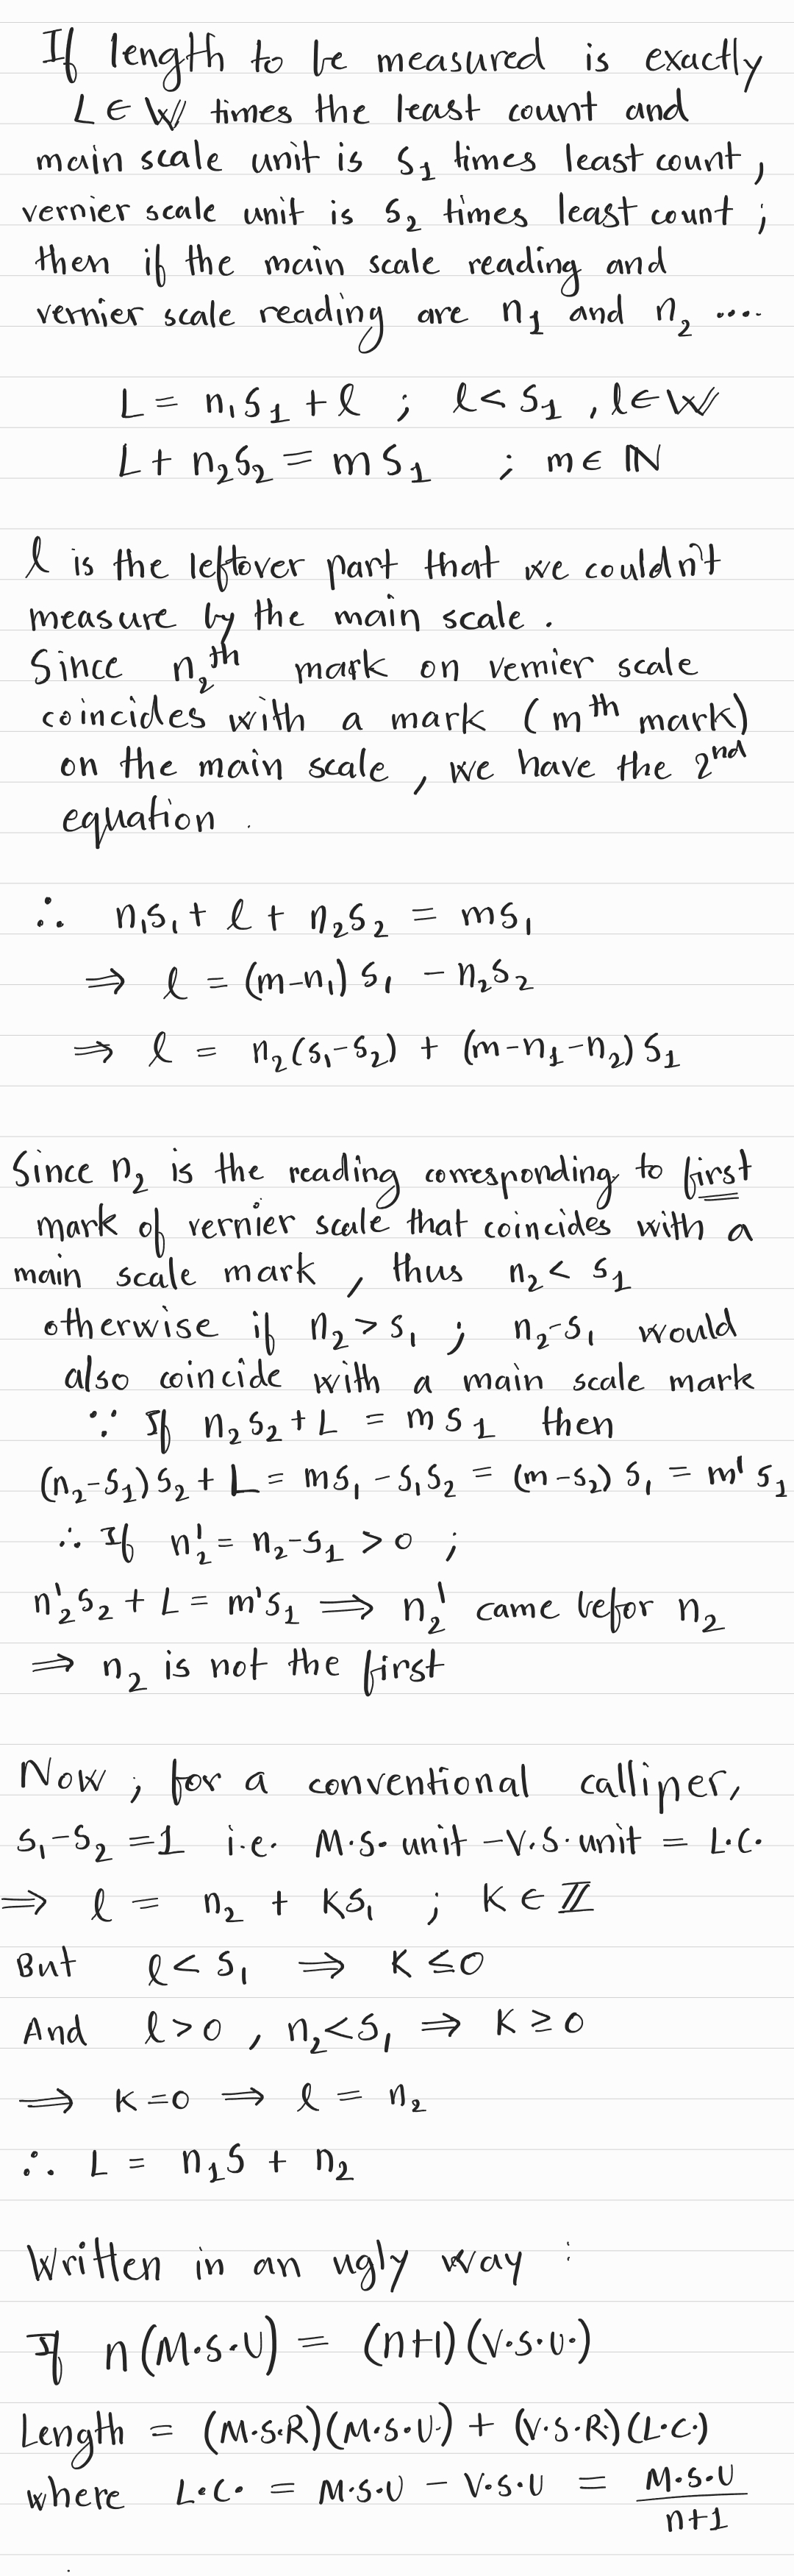 If length to be measured is exactly
L ∈ W times the least count and
main scale unit is s₁ times least count,
vernier scale unit is s₂ times least count ;
then if the main scale reading and
vernier scale reading are n₁ and n₂ ....
L = n₁s₁ + l ; l < s₁ , l ∈ W
L + n₂s₂ = m s₁ ; m ∈ ℕ
l is the leftover part that we couldn't
measure by the main scale .
Since n₂ᵗʰ mark on vernier scale
coincides with a mark (mᵗʰ mark)
on the main scale , we have the 2ⁿᵈ
equation .
∴ n₁s₁ + l + n₂s₂ = ms₁
⇒ l = (m-n₁) s₁ - n₂s₂
⇒ l = n₂(s₁-s₂) + (m-n₁-n₂) s₁
Since n₂ is the reading corresponding to first
mark of vernier scale that coincides with a
main scale mark , thus n₂ < s₁
otherwise if n₂ > s₁ ; n₂-s₁ would
also coincide with a main scale mark
∵ If n₂s₂ + L = m s₁ then
(n₂-s₁)s₂ + L = ms₁ - s₁s₂ = (m-s₂) s₁ = m' s₁
∴ If n₂' = n₂-s₁ > 0 ;
n₂'s₂ + L = m's₁ ⟹ n₂' came befor n₂
⇒ n₂ is not the first
Now ; for a conventional calliper,
s₁-s₂ = 1 i.e. M.S. unit - V.S. unit = L.C.
⇒ l = n₂ + Ks₁ ; K ∈ ℤ
But l < s₁ ⇒ K ≤ 0
And l > 0 , n₂ < s₁ ⇒ K ≥ 0
⇒ K = 0 ⇒ l = n₂
∴ L = n₁S + n₂
Written in an ugly way :
If n(M.S.U) = (n+1)(V.S.U.)
Length = (M.S.R)(M.S.U.) + (V.S.R.)(L.C.)
where L.C. = M.S.U - V.S.U = M.S.U / n+1